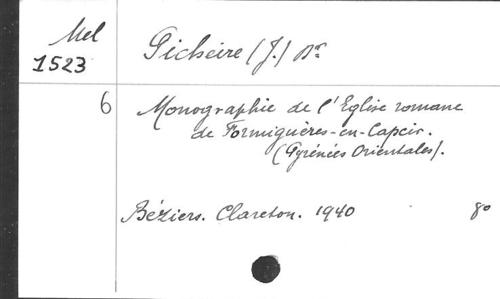 Mel
1523
Picheire (J.) Dr
6
Monographie de l'Eglise romane
de Formiguères-en-Capcir.
(Pyrénées Orientales).
Béziers. Clareton. 1940
8°